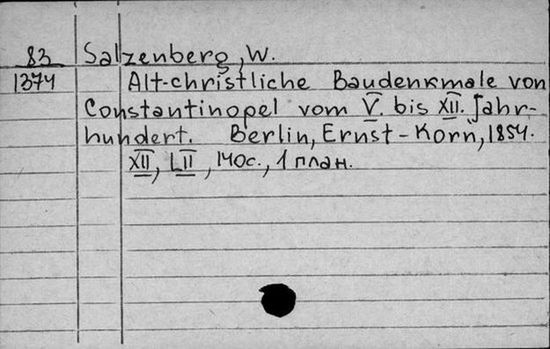 83 Salzenberg, W.
1374 Alt-christliche Baudenkmale von
Constantinopel vom V. bis XII. Jahr-
hundert. Berlin, Ernst-Korn, 1854.
XII, LII, 140с., 1 план.